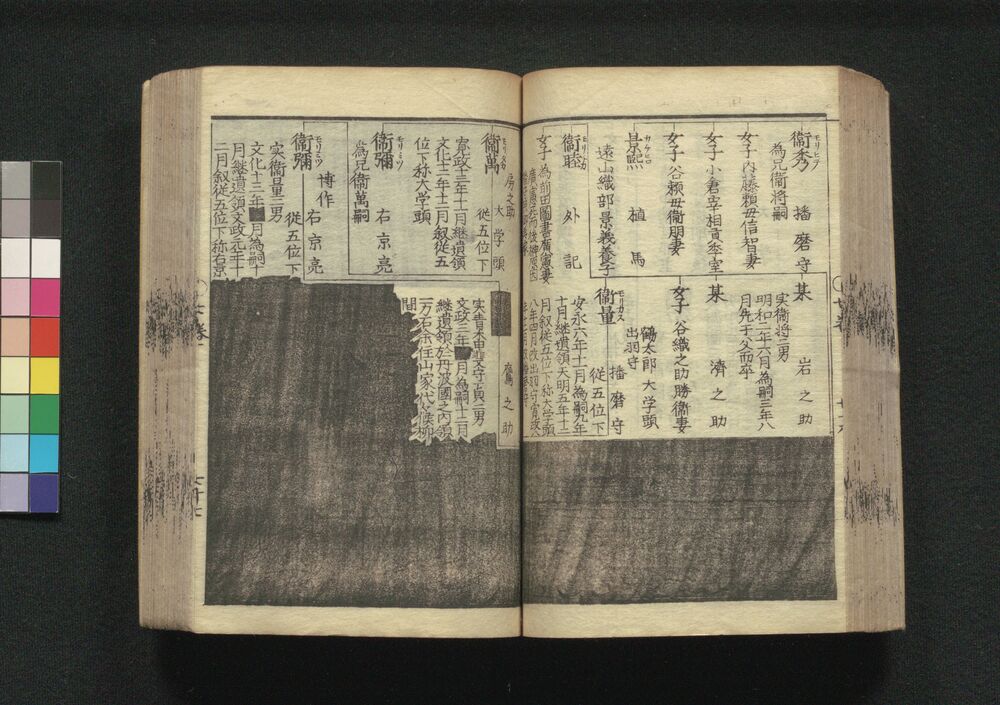 衞秀 モリヒデ
播磨守
為兄衞将嗣
女子 内藤頼毋信智妻
女子 小倉宰相貢季室
女子 谷頼毋衞朋妻
景熙 カゲヒロ
植馬
遠山織部景義養子
衞睦
外記
女子 為前田圖書廣憲妻
某
岩之助
実衞将三男
明和二年六月為嗣三年八
月先于父而卒
某 濟之助
女子 谷織之助勝衞妻
鶴太郎 大学頭
出羽守
播磨守
衞量 モリカズ
従五位下
安永六年十一月為嗣九年
十月継遺領天明五年十二
月叙従五位下称大学頭
房之助
大学頭
衞萬
従五位下
寛政十三年十一月継遺領
文化十二年十二月叙従五
位下称大学頭
衞彌 モリミツ
右京亮
為兄衞萬嗣
博作
右京亮
衞彌 モリミツ
従五位下
実衞量三男
文化十三年
月為嗣十
月継遺領文政元年十
二月叙従五位下称右京
鷹之助
文政三年
月為嗣十二月
継遺領於丹波國之内領
一万石余住山家代々候柳
間
七十七